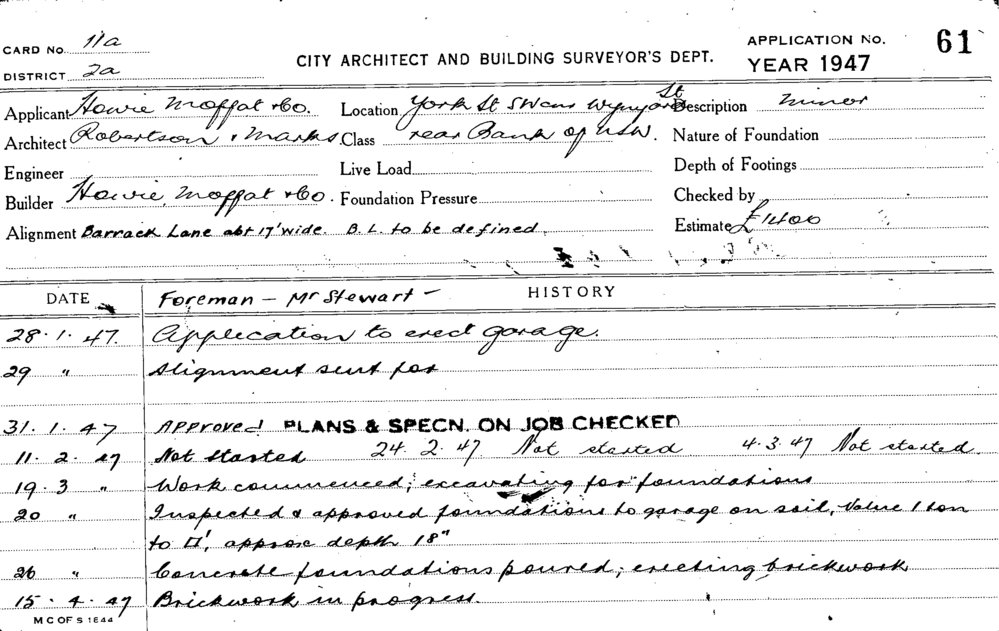 CARD No. 11a
DISTRICT 2a
CITY ARCHITECT AND BUILDING SURVEYOR'S DEPT.
APPLICATION No. 61
YEAR 1947
Applicant Howie Moffat & Co. Location York St Swans Wynyard St Description minor
Architect Robertson & Marks. Class rear Bank of NSW. Nature of Foundation
Engineer Live Load Depth of Footings
Builder Howie, Moffat & Co. Foundation Pressure Checked by
Alignment Barrack Lane abt 17' wide. B.L. to be defined. Estimate £1400
DATE Foreman — Mr Stewart — HISTORY
28.1.47. Application to erect garage.
29 " Alignment sent for
31.1.47 Approved PLANS & SPECN. ON JOB CHECKED
11.2.47 Not started 24.2.47 Not started 4.3.47 Not started
19.3 " Work commenced; excavating for foundations
20 " Inspected & approved foundations to garage on soil, Value 1 ton
to □', approx depth 18"
26 " Concrete foundations poured; erecting brickwork
15.4.47 Brickwork in progress.
M C OF S 1844